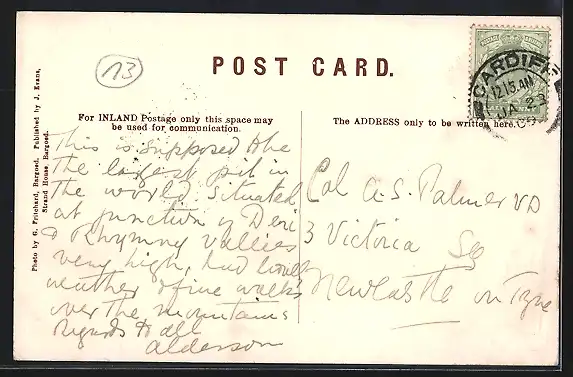 13
POST CARD.
For INLAND Postage only this space may
be used for communication.
The ADDRESS only to be written here.
Photo by G. Prichard, Bargoed. Published by J. Evans,
Strand House, Bargoed.
CARDIFF
12.15 AM
JA 23
09
This is supposed to be
the largest pit in
the world. Situated
at junction of Deri
& Rhymny Vallies
very high, had lovely
weather & fine walks
over the mountains
Regards to all
Alderson
Col A. S. Palmer VD
3 Victoria Sq
Newcastle on Tyne